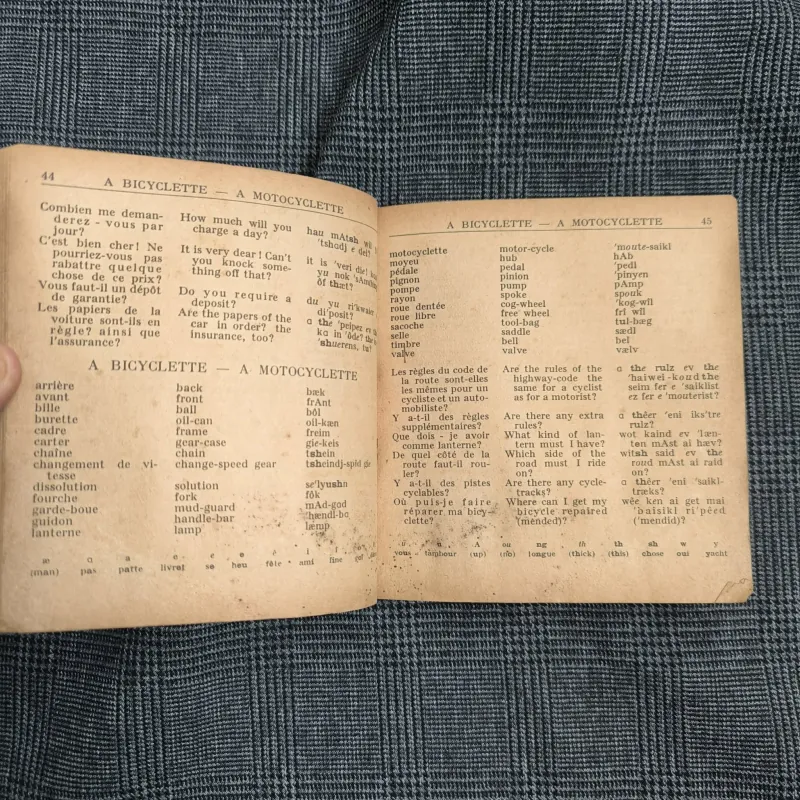 44
A BICYCLETTE — A MOTOCYCLETTE
Combien me deman-
derez - vous par
jour?
C'est bien cher! Ne
pourriez-vous pas
rabattre quelque
chose de ce prix?
Vous faut-il un dépôt
de garantie?
Les papiers de la
voiture sont-ils en
règle? ainsi que
l'assurance?
How much will you
charge a day?
It is very dear! Can't
you knock some-
thing off that?
Do you require a
deposit?
Are the papers of the
car in order? the
insurance, too?
hau mAtsh
'tshadj e dei?
it is 'veri die!
yu nok
ôf thæt?
du yu ri'kwaer
di'posit?
ɑ the 'peipez
ka in 'ôde? the
'shuerens, tu?
A BICYCLETTE — A MOTOCYCLETTE
arrière back bæk
avant front frAnt
bille ball bôl
burette oil-can oil-kæn
cadre frame freim
carter gear-case gie-keis
chaîne chain tshein
changement de vi- change-speed gear tsheindj-spid gie
tesse
dissolution solution se'lyushn
fourche fork fôk
garde-boue mud-guard mAd-gad
guidon handle-bar hændl-ba
lanterne lamp læmp
æ ɑ a e e e i
(man) pas patte livret se heu fête ami fine
A BICYCLETTE — A MOTOCYCLETTE 45
motocyclette motor-cycle 'moute-saikl
moyeu hub hAb
pédale pedal 'pedl
pignon pinion 'pinyen
pompe pump pAmp
rayon spoke spouk
roue dentée cog-wheel 'kog-wîl
roue libre free wheel frî wîl
sacoche tool-bag tul-bæg
selle saddle sædl
timbre bell bel
valve valve vælv
Les règles du code de
la route sont-elles
les mêmes pour un
cycliste et un auto-
mobiliste?
Y a-t-il des règles
supplémentaires?
Que dois - je avoir
comme lanterne?
De quel côté de la
route faut-il rou-
ler?
Y a-t-il des pistes
cyclables?
Où puis-je faire
réparer ma bicy-
clette?
Are the rules of the
highway-code the
same for a cyclist
as for a motorist?
Are there any extra
rules?
What kind of lan-
tern must I have?
Which side of the
road must I ride
on?
Are there any cycle-
tracks?
Where can I get my
bicycle repaired
(mended)?
ɑ the rulz ev the
'haiwei-koud the
seim fer e 'saiklist
ez fer e 'mouterist?
ɑ thêer 'eni iks'tre
rulz?
wot kaind ev 'læn-
ten mAst ai hæv?
witsh said ev the
roud mAst ai raid
on?
ɑ thêer 'eni 'saikl-
træks?
wêe ken ai get mai
'baisikl ri'pêed
('mendid)?
u A ou ng th th sh w y
vous - tambour (up) (no) longue (thick) (this) chose oui yacht